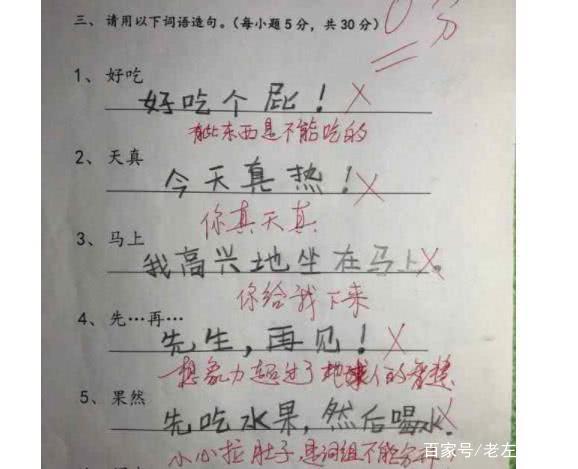 三、请用以下词语造句。（每小题5分，共30分） 0分
1、好吃
好吃个屁！
有些东西是不能吃的
2、天真
今天真热！
你真天真
3、马上
我高兴地坐在马上。
你给我下来
4、先…再…
先生，再见！
想象力超过了地球人的智慧
5、果然
先吃水果，然后喝水。
小心拉肚子，是词组不能分开
百家号/老左